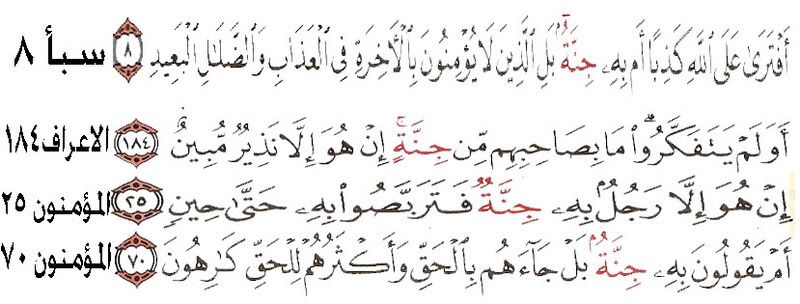 أَفْتَرَىٰ عَلَى ٱللَّهِ كَذِبًا أَم بِهِۦ جِنَّةٌۢ بَلِ ٱلَّذِينَ لَا يُؤْمِنُونَ بِٱلْأَخِرَةِ فِى ٱلْعَذَابِ وَٱلضَّلَٰلِ ٱلْبَعِيدِ ٨ سبأ ٨
أَوَلَمْ يَتَفَكَّرُوا۟ۗ مَا بِصَاحِبِهِم مِّن جِنَّةٍۚ إِنْ هُوَ إِلَّا نَذِيرٌ مُّبِينٌ ١٨٤ الاعراف ١٨٤
إِنْ هُوَ إِلَّا رَجُلٌۢ بِهِۦ جِنَّةٌ فَتَرَبَّصُوا۟ بِهِۦ حَتَّىٰ حِينٍ ٢٥ المؤمنون ٢٥
أَمْ يَقُولُونَ بِهِۦ جِنَّةٌۢ بَلْ جَآءَهُم بِٱلْحَقِّ وَأَكْثَرُهُمْ لِلْحَقِّ كَٰرِهُونَ ٧٠ المؤمنون ٧٠